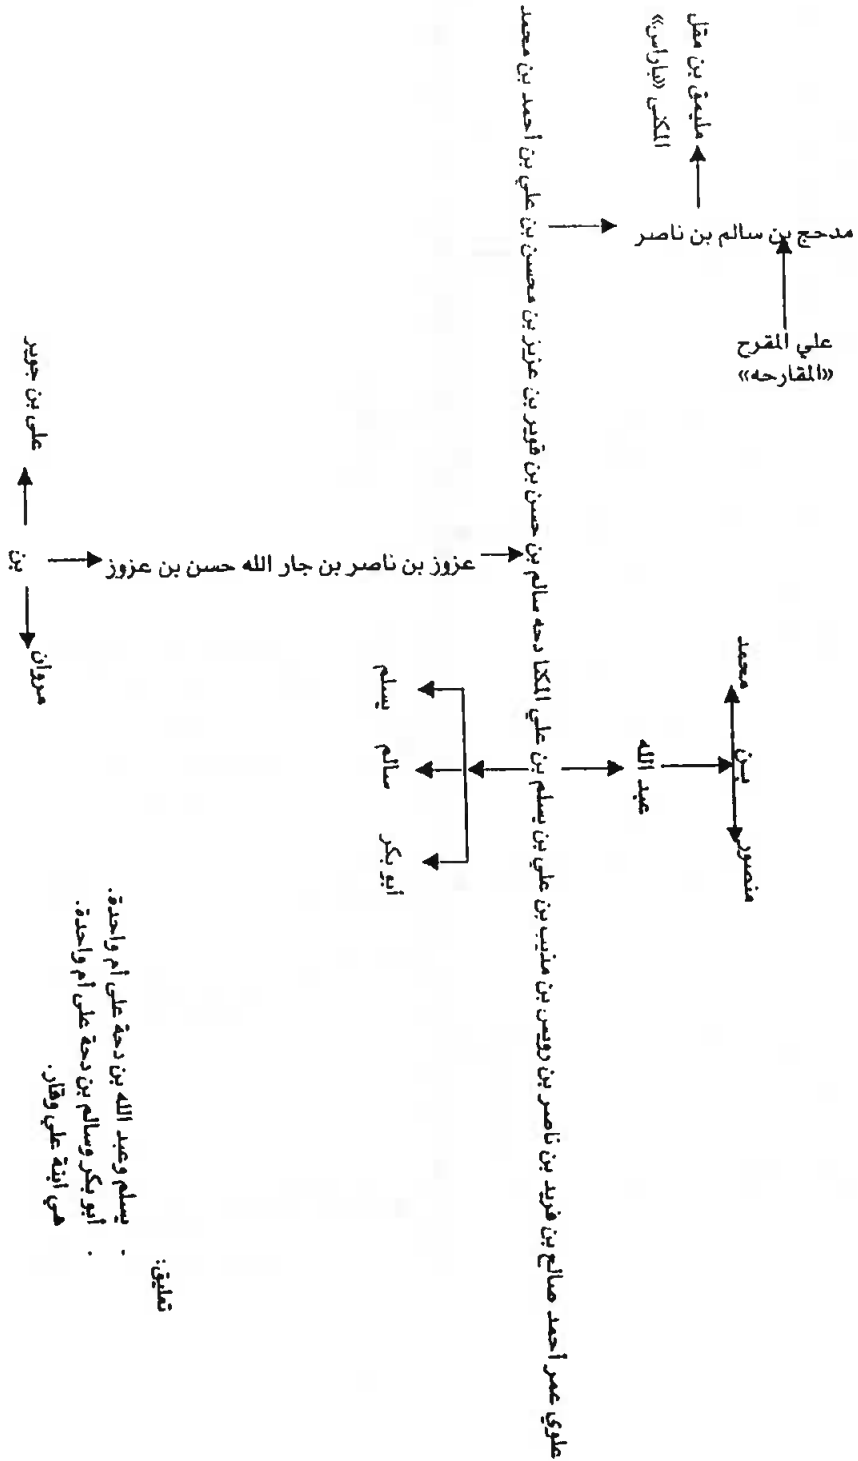 مليمق بن مقل
المكنى «باراس»
مدحج بن سالم بن ناصر
علي المقرح
«المقارحه»
علوي عمر أحمد صالح بن فريد بن ناصر بن رويس بن مذيب بن علي بن يسلم بن علي المكنا دحه سالم بن حسن بن قوير بن عزيز بن محسن بن علي بن أحمد بن محمد
عزوز بن ناصر بن جار الله حسن بن عزوز
علي بن جوير
بن
مروان
محمد
بن
منصور
عبد الله
يسلم
سالم
أبو بكر
تعليق:
- يسلم وعبد الله بن دحة على أم واحدة.
- أبو بكر وسالم بن دحة على أم واحدة.
هي ابنة علي وقار.